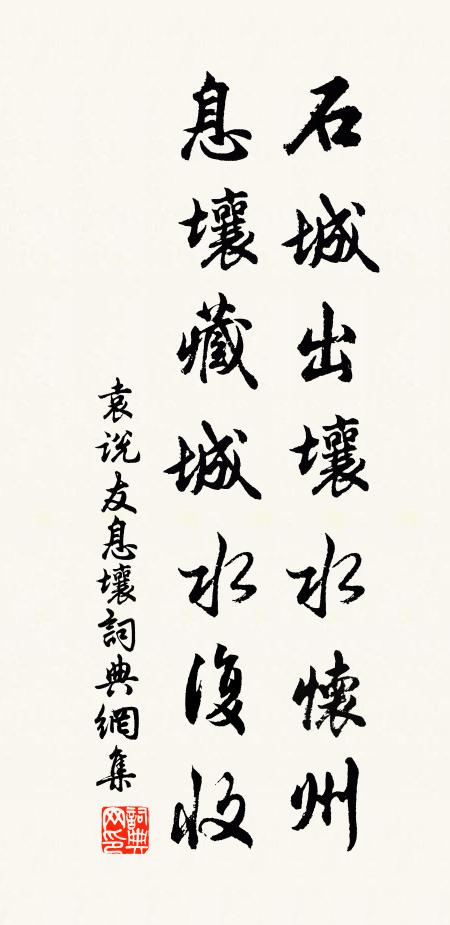 石城出壤水懷州
息壤藏城水復收
袁说友息壤詞典網集
詞典網印